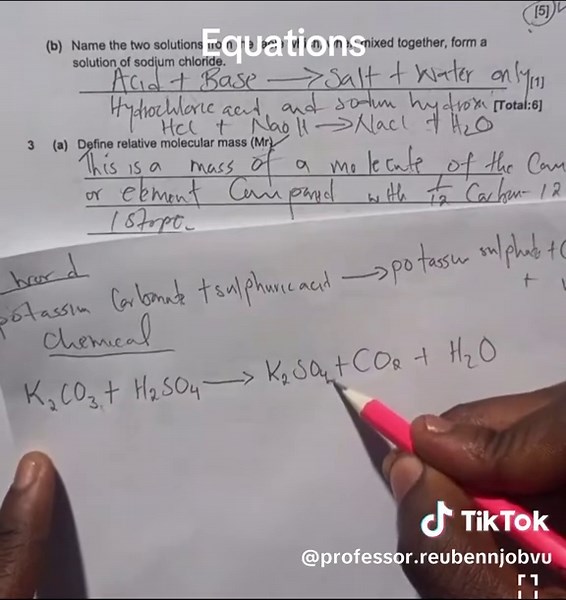 [5]
Equations
(b) Name the two solutions from mixed together, form a
solution of sodium chloride.
Acid + Base → Salt + Water only [1]
Hydrochloric acid and sodium hydroxi [Total:6]
Hcl + NaoH → Nacl + H2O
3 (a) Define relative molecular mass (Mr)
This is a mass of a molecule of the Com
or element Compared with 1/12 Carbon-12
Isotope.
word
potassium Carbonate + sulphuric acid → potassium sulphate +
+
Chemical
K2CO3 + H2SO4 → K2SO4 + CO2 + H2O
TikTok
@professor.reubennjobvu